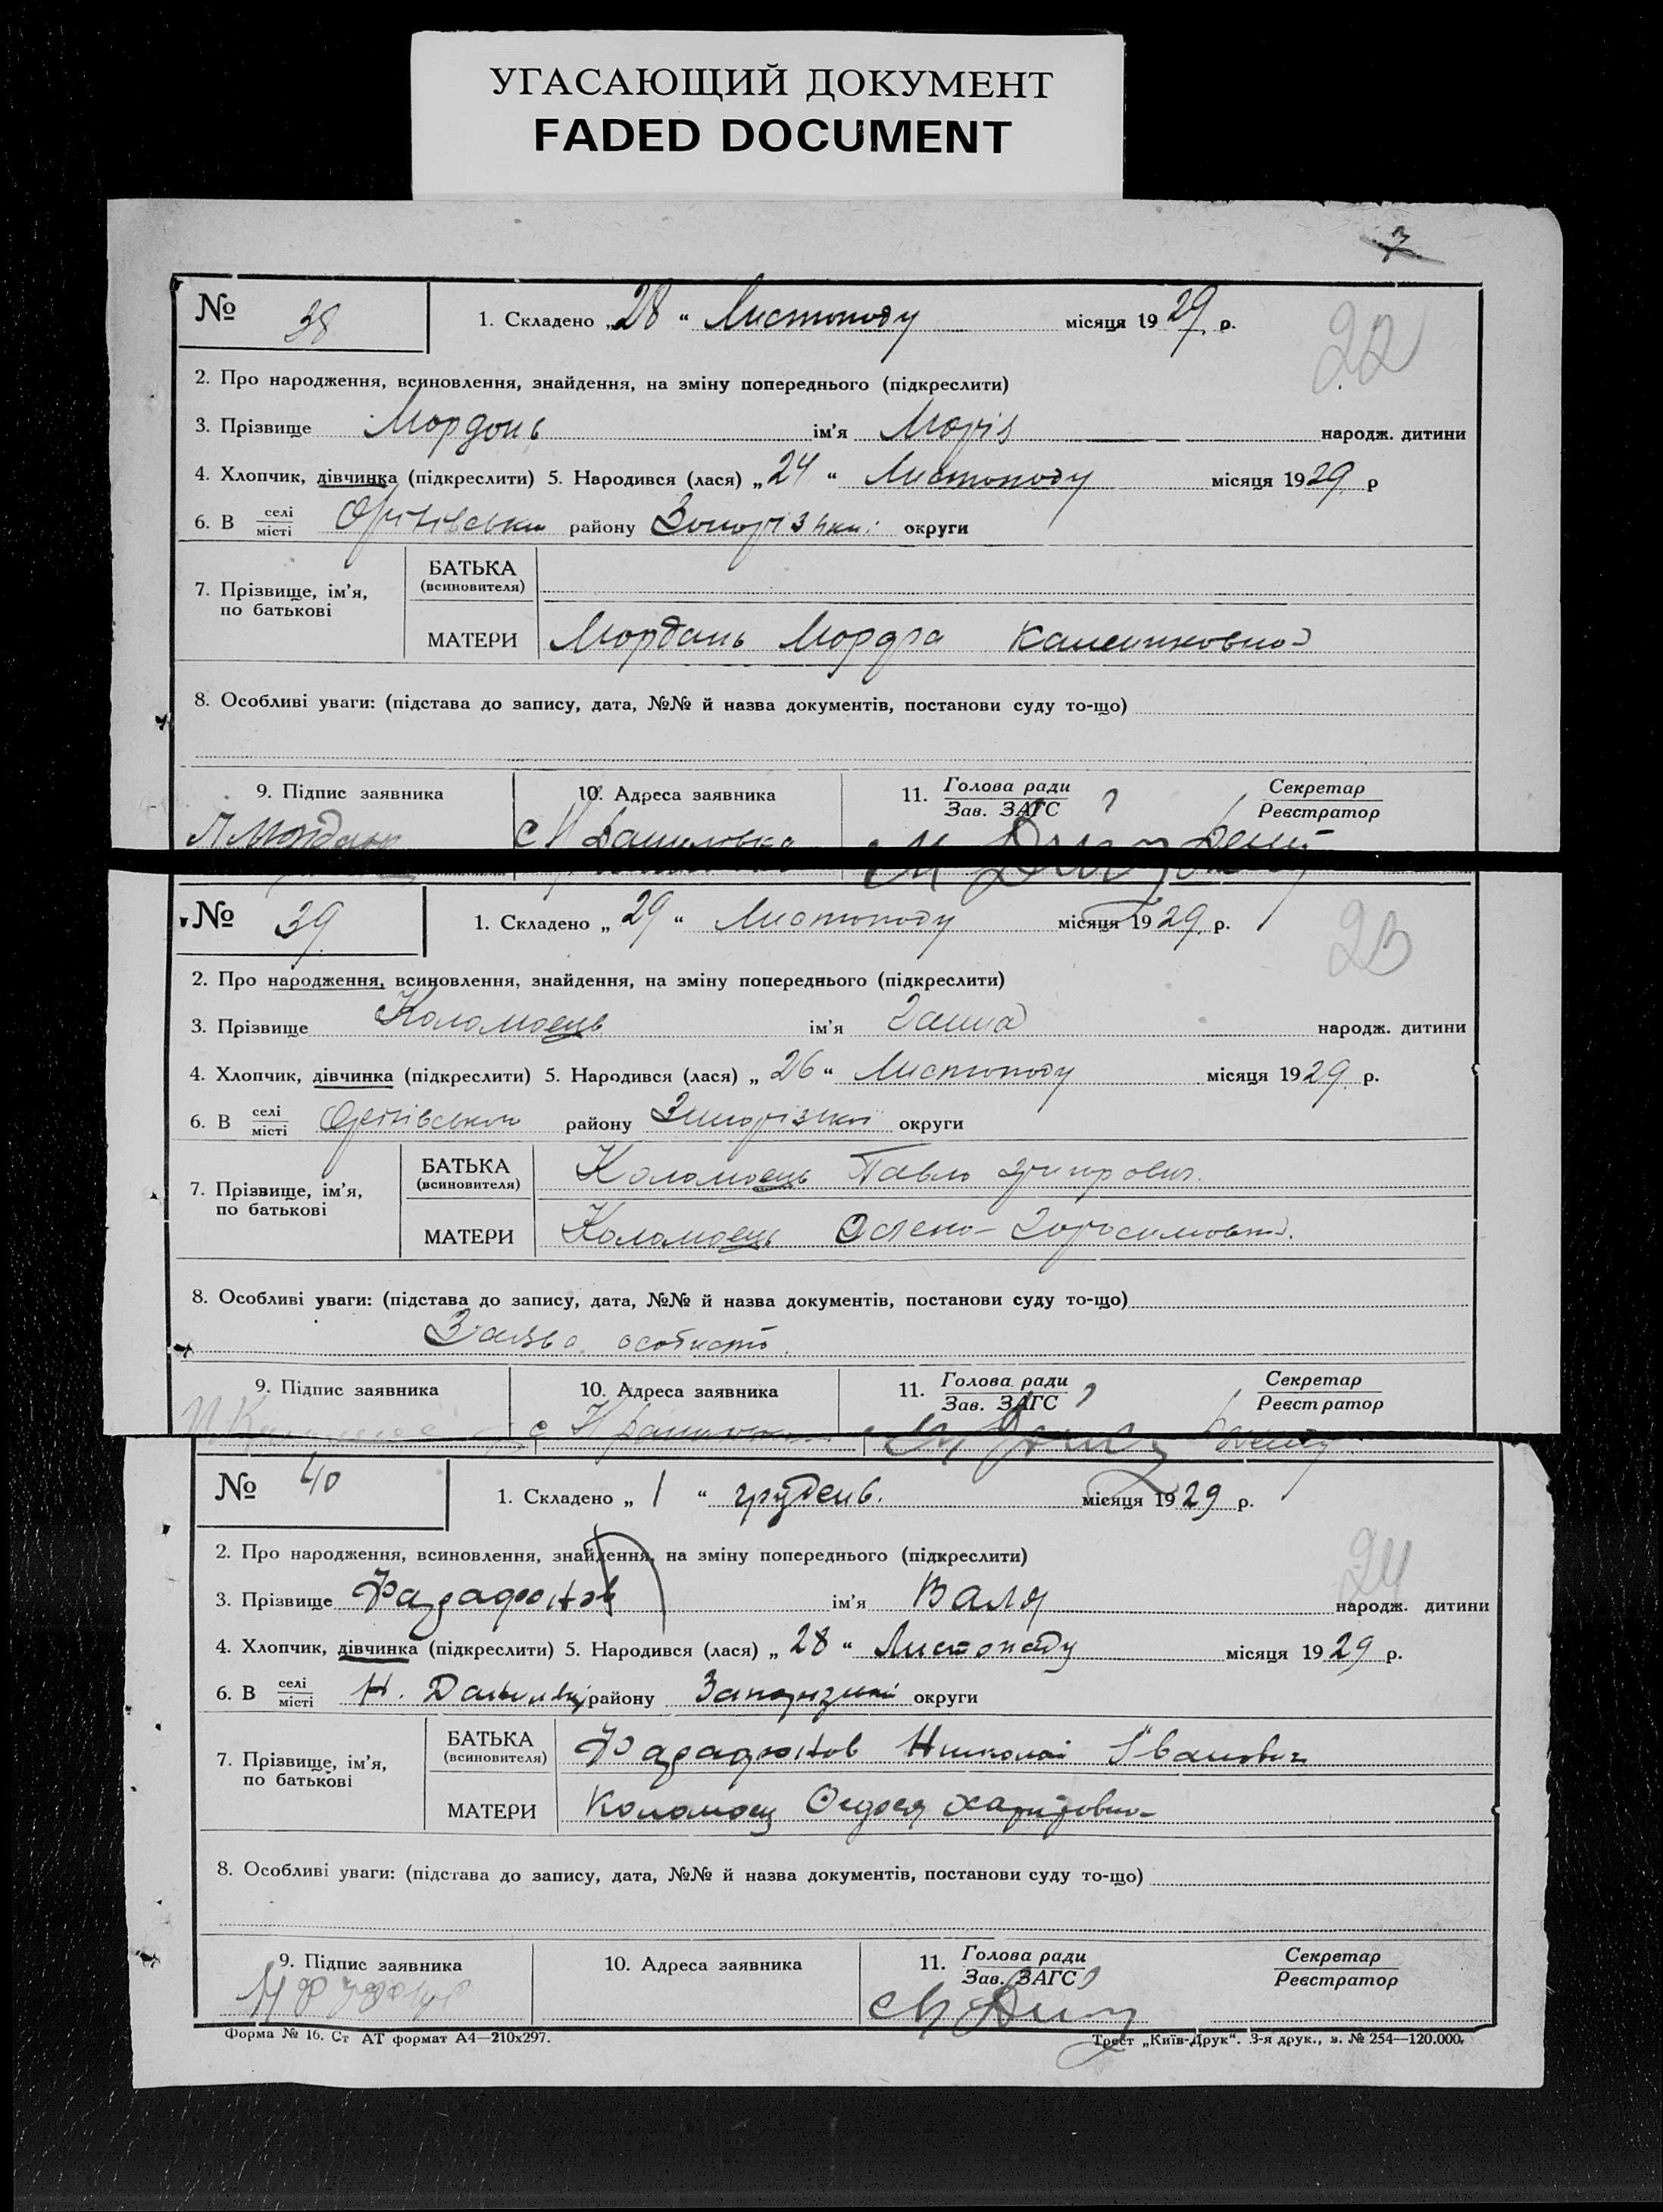 УГАСАЮЩИЙ ДОКУМЕНТ
FADED DOCUMENT
7
№ 38
1. Складено „28“ Листопаду місяця 1929 р.
22
2. Про народження, всиновлення, знайдення, на зміну попереднього (підкреслити)
3. Прізвище Мордань ім'я Марія народж. дитини
4. Хлопчик, дівчинка (підкреслити) 5. Народився (лася) „24“ Листопаду місяця 1929 р
6. В селі місті Оріхівськи району Запорізької округи
7. Прізвище, ім'я, по батькові
БАТЬКА (всиновителя)
МАТЕРИ Мордань Марфа
8. Особливі уваги: (підстава до запису, дата, №№ й назва документів, постанови суду то-що)
9. Підпис заявника 10. Адреса заявника 11. Голова ради Зав. ЗАГС Секретар Реєстратор
№ 39
1. Складено „29“ Листопаду місяця 1929 р.
23
2. Про народження, всиновлення, знайдення, на зміну попереднього (підкреслити)
3. Прізвище Коломоець ім'я Ганна народж. дитини
4. Хлопчик, дівчинка (підкреслити) 5. Народився (лася) „26“ Листопаду місяця 1929 р.
6. В селі місті Оріхівськи району Запорізької округи
7. Прізвище, ім'я, по батькові
БАТЬКА (всиновителя) Коломоець Павло
МАТЕРИ Коломоець
8. Особливі уваги: (підстава до запису, дата, №№ й назва документів, постанови суду то-що)
Заява особисто.
9. Підпис заявника 10. Адреса заявника 11. Голова ради Зав. ЗАГС Секретар Реєстратор
№ 40
1. Складено „1“ грудень. місяця 1929 р.
24
2. Про народження, всиновлення, знайдення, на зміну попереднього (підкреслити)
3. Прізвище ім'я Валя народж. дитини
4. Хлопчик, дівчинка (підкреслити) 5. Народився (лася) „28“ Листопаду місяця 1929 р.
6. В селі місті району округи
7. Прізвище, ім'я, по батькові
БАТЬКА (всиновителя) Николай Іванович
МАТЕРИ Коломоец Харитовна
8. Особливі уваги: (підстава до запису, дата, №№ й назва документів, постанови суду то-що)
9. Підпис заявника 10. Адреса заявника 11. Голова ради Зав. ЗАГС Секретар Реєстратор
Форма № 16. Ст АТ формат А4—210х297.
Трест „Київ-Друк“. 3-я друк., з. № 254—120.000.